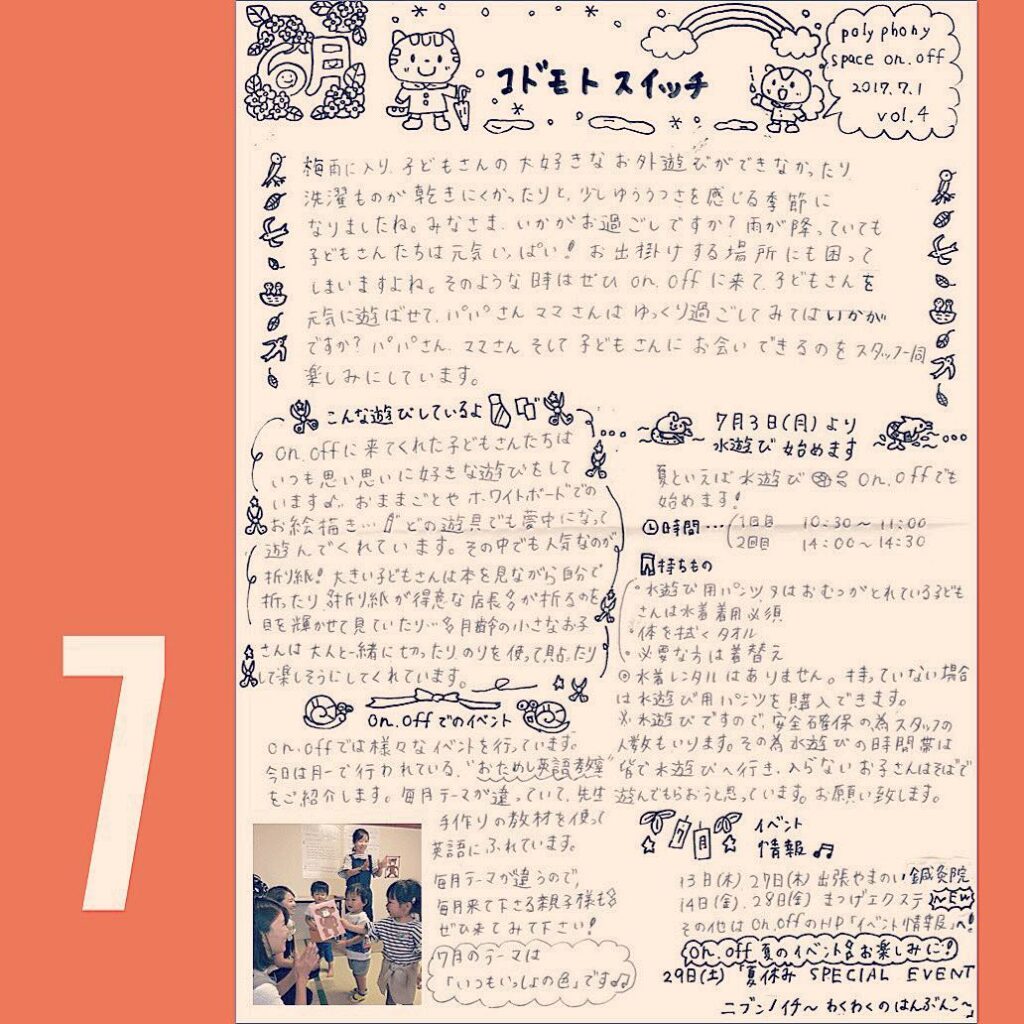 7
6月
コドモト スイッチ
polyphony
space on.off
2017.7.1
vol.4
梅雨に入り、子どもさんの大好きなお外遊びができなかったり
洗濯ものが乾きにくかったりと、少しゆううつさを感じる季節に
なりましたね。みなさま、いかがお過ごしですか?雨が降っていても
子どもさんたちは元気いっぱい!お出掛けする場所にも困って
しまいますよね。そのような時はぜひon.offに来て、子どもさんを
元気に遊ばせて、パパさんママさんはゆっくり過ごしてみてはいかが
ですか?パパさん、ママさんそして子どもさんにお会いできるのをスタッフ一同
楽しみにしています。
こんな遊びしているよ
on.offに来てくれた子どもさんたちは
いつも思い思いに好きな遊びをして
います♪。おままごとやホワイトボードでの
お絵描き…どの遊具でも夢中になって
遊んでくれています。その中でも人気なのが
折り紙!大きい子どもさんは本を見ながら自分で
折ったり、折り紙が得意な店長が折るのを
目を輝かせて見ていたり…月齢の小さなお子
さんは大人と一緒に切ったりのりを使って貼ったり
して楽しそうにしてくれています。
on.offでのイベント
on.offでは様々なイベントを行っています。
今日は月一で行われている、"おためし英語教室"
をご紹介します。毎月テーマが違っていて、先生
手作りの教材を使って
英語にふれています。
毎月テーマが違うので、
毎月来て下さる親子様も
ぜひ来てみて下さい!
7月のテーマは
「いつもいっしょの色」です♫
7月3日(月)より
水遊び始めます
夏といえば水遊び on.offでも
始めます!
時間…1回目 10:30〜11:00
2回目 14:00〜14:30
持ちもの
・水遊び用パンツ又はおむつがとれている子ども
さんは水着着用必須
・体を拭くタオル
・必要な方は着替え
◎水着レンタルはありません。持っていない場合
は水遊び用パンツを購入できます。
※水遊びですので、安全確保の為スタッフの
人数もいります。その為水遊びの時間帯は
皆で水遊びへ行き、入らないお子さんはそばで
遊んでもらおうと思っています。お願い致します。
7月
イベント
情報♫
13日(木) 27日(木) 出張やまのい鍼灸院
14日(金)、28日(金) まつげエクステ NEW
その他はon.offのHP「イベント情報」へ!
on.off夏のイベントもお楽しみに!
29日(土)「夏休み SPECIAL EVENT
ニブンノイチ〜わくわくのはんぶんこ〜」